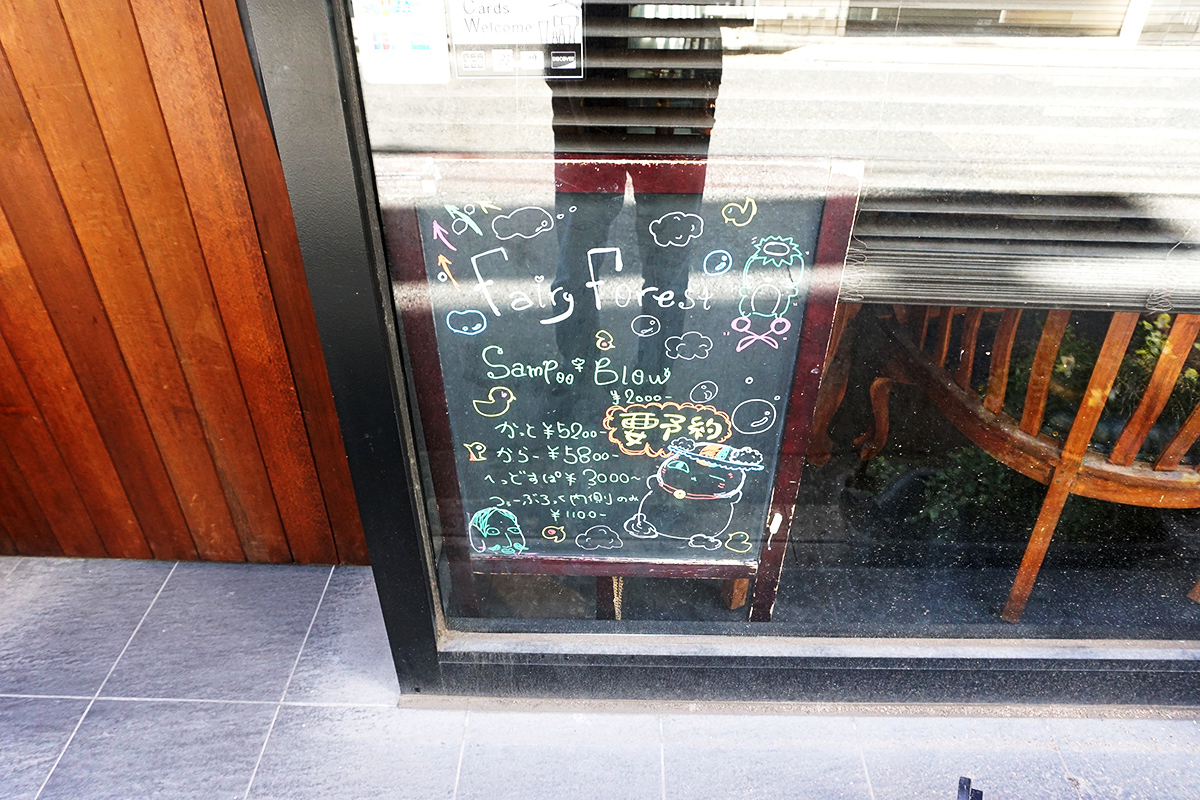 Cards
Welcome
DISCOVER
Fairy Forest
Sampoo Blow
¥2000-
要予約
かっと ¥5200-
からー ¥5800-
へっどすぱ ¥3000~
つぃーぶろっく内側のみ
¥1100-